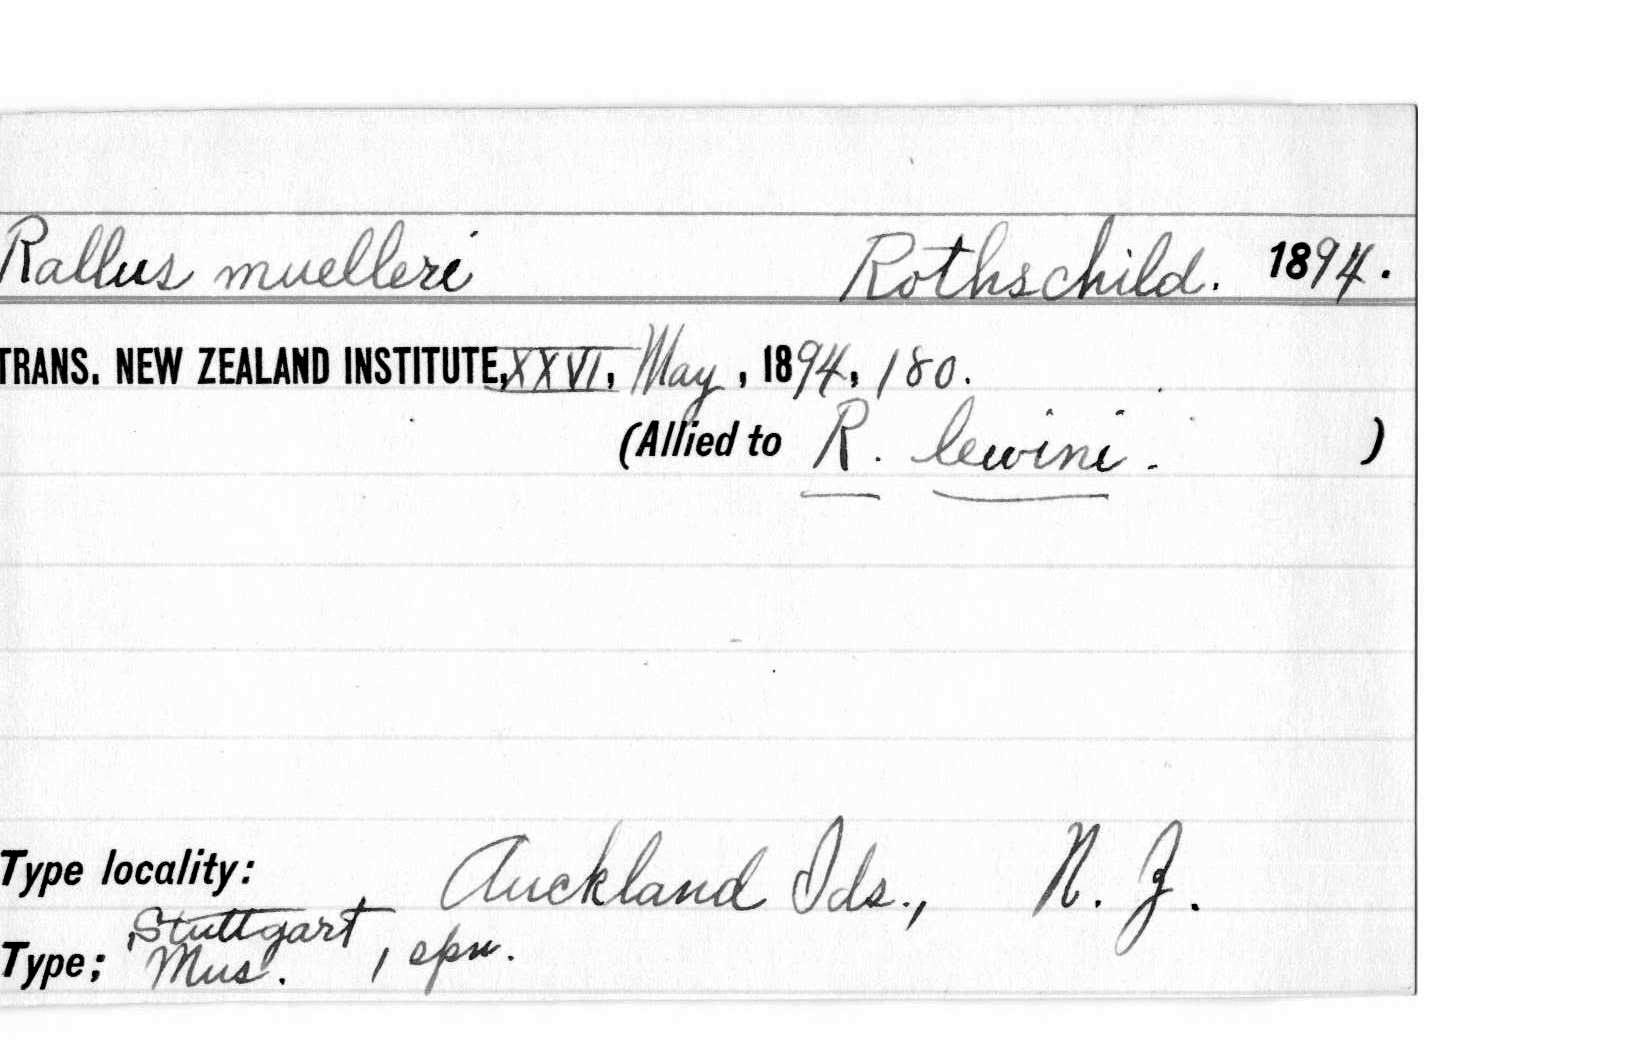 Rallus muelleri Rothschild. 1894.
TRANS. NEW ZEALAND INSTITUTE, XXVI, May, 1894, 180.
(Allied to R. lewini. )
Type locality: Auckland Ids., N. Z.
Type; Stuttgart
Mus. , spn.